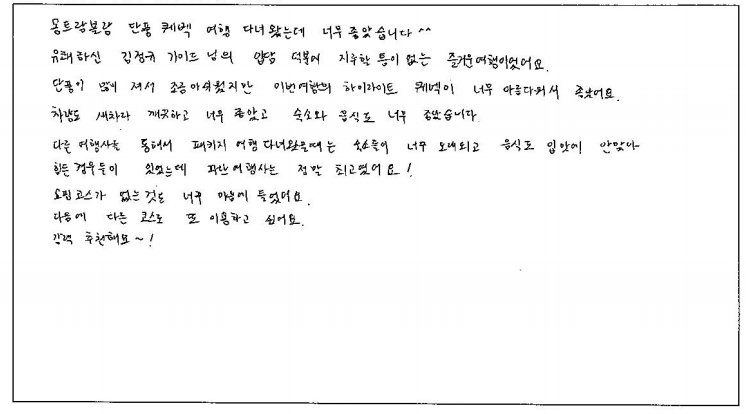 몽트랑블랑 단풍 퀘벡 여행 다녀왔는데 너무 좋았습니다 ^^
유쾌하신 김정규 가이드님의 입담 덕분에 지루할 틈이 없는 즐거운여행이었어요.
단풍이 많이 져서 조금아쉬웠지만 이번여행의 하이라이트 퀘벡이 너무 아름다워서 좋았어요.
차량도 새차라 깨끗하고 너무 좋았고 숙소와 음식도 너무 좋았습니다.
다른 여행사를 통해서 패키지 여행 다녀왔을때는 숙소들이 너무 오래되고 음식도 입맛에 안맞아
힘든경우들이 있었는데 파란여행사는 정말 최고였어요!
쇼핑코스가 없는것도 너무 마음에 들었어요.
다음에 다른 코스로 또 이용하고 싶어요.
강력 추천해요~!